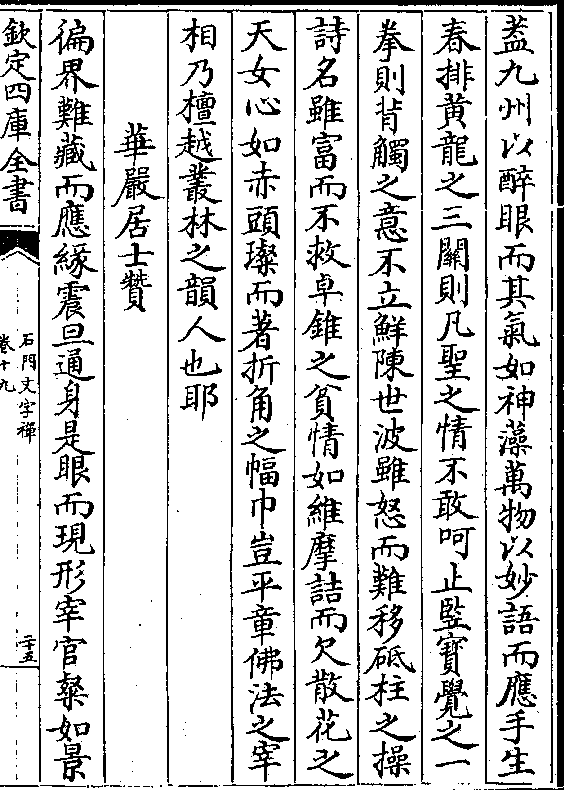 蓋九州以醉眼而其氣如神藻萬物以妙語而應手生
春排黃龍之三關則凡聖之情不敢呵止竪寶覺之一
拳則背觸之意不立鮮陳世波雖怒而難移砥柱之操
詩名雖富而不救卓錐之貧情如維摩詰而欠散花之
天女心如赤頭璨而著折角之幅巾豈平章佛法之宰
相乃檀越叢林之韻人也耶
華嚴居士贊
徧界難藏而應緣震旦通身是眼而現形宰官粲如景
欽定四庫全書
石門文字禪
卷十九
二十五